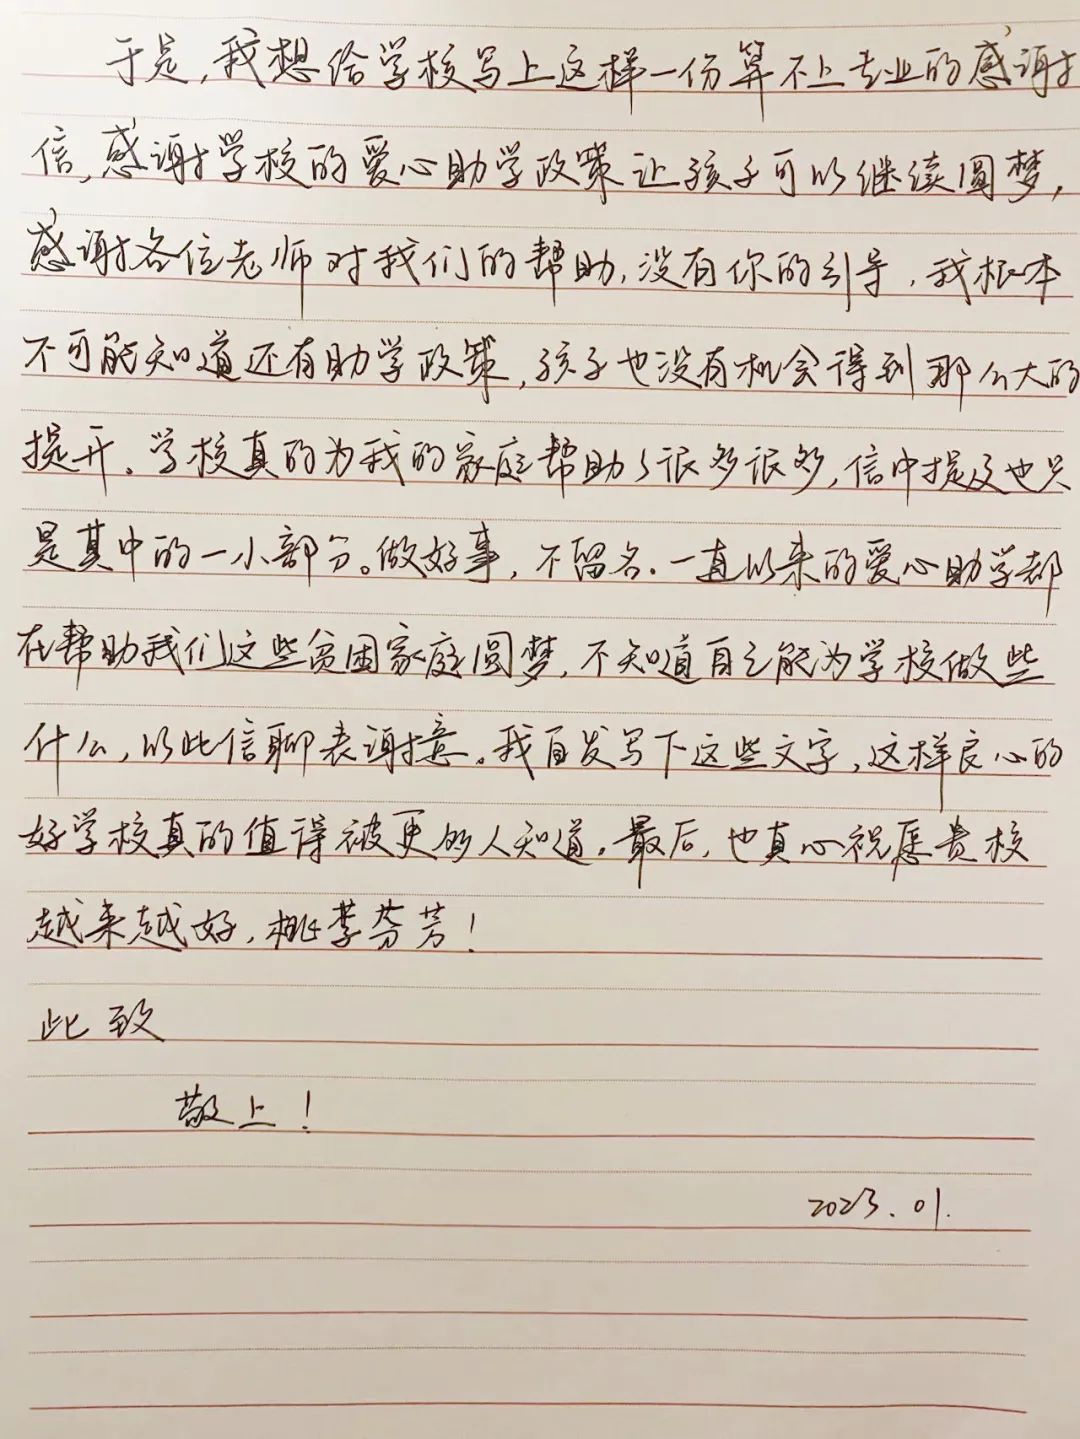 于是,我想给学校写上这样一份算不上专业的感谢
信,感谢学校的爱心助学政策让孩子可以继续圆梦,
感谢各位老师对我们的帮助,没有你的引导,我根本
不可能知道还有助学政策,孩子也没有机会得到那么大的
提升。学校真的为我的家庭帮助了很多很多,信中提及也只
是其中的一小部分。做好事,不留名.一直以来的爱心助学都
在帮助我们这些贫困家庭圆梦,不知道自己能为学校做些
什么,以此信聊表谢意。我自发写下这些文字,这样良心的
好学校真的值得被更多人知道。最后,也真心祝愿贵校
越来越好,桃李芬芳!
此致
敬上!
2023.01.